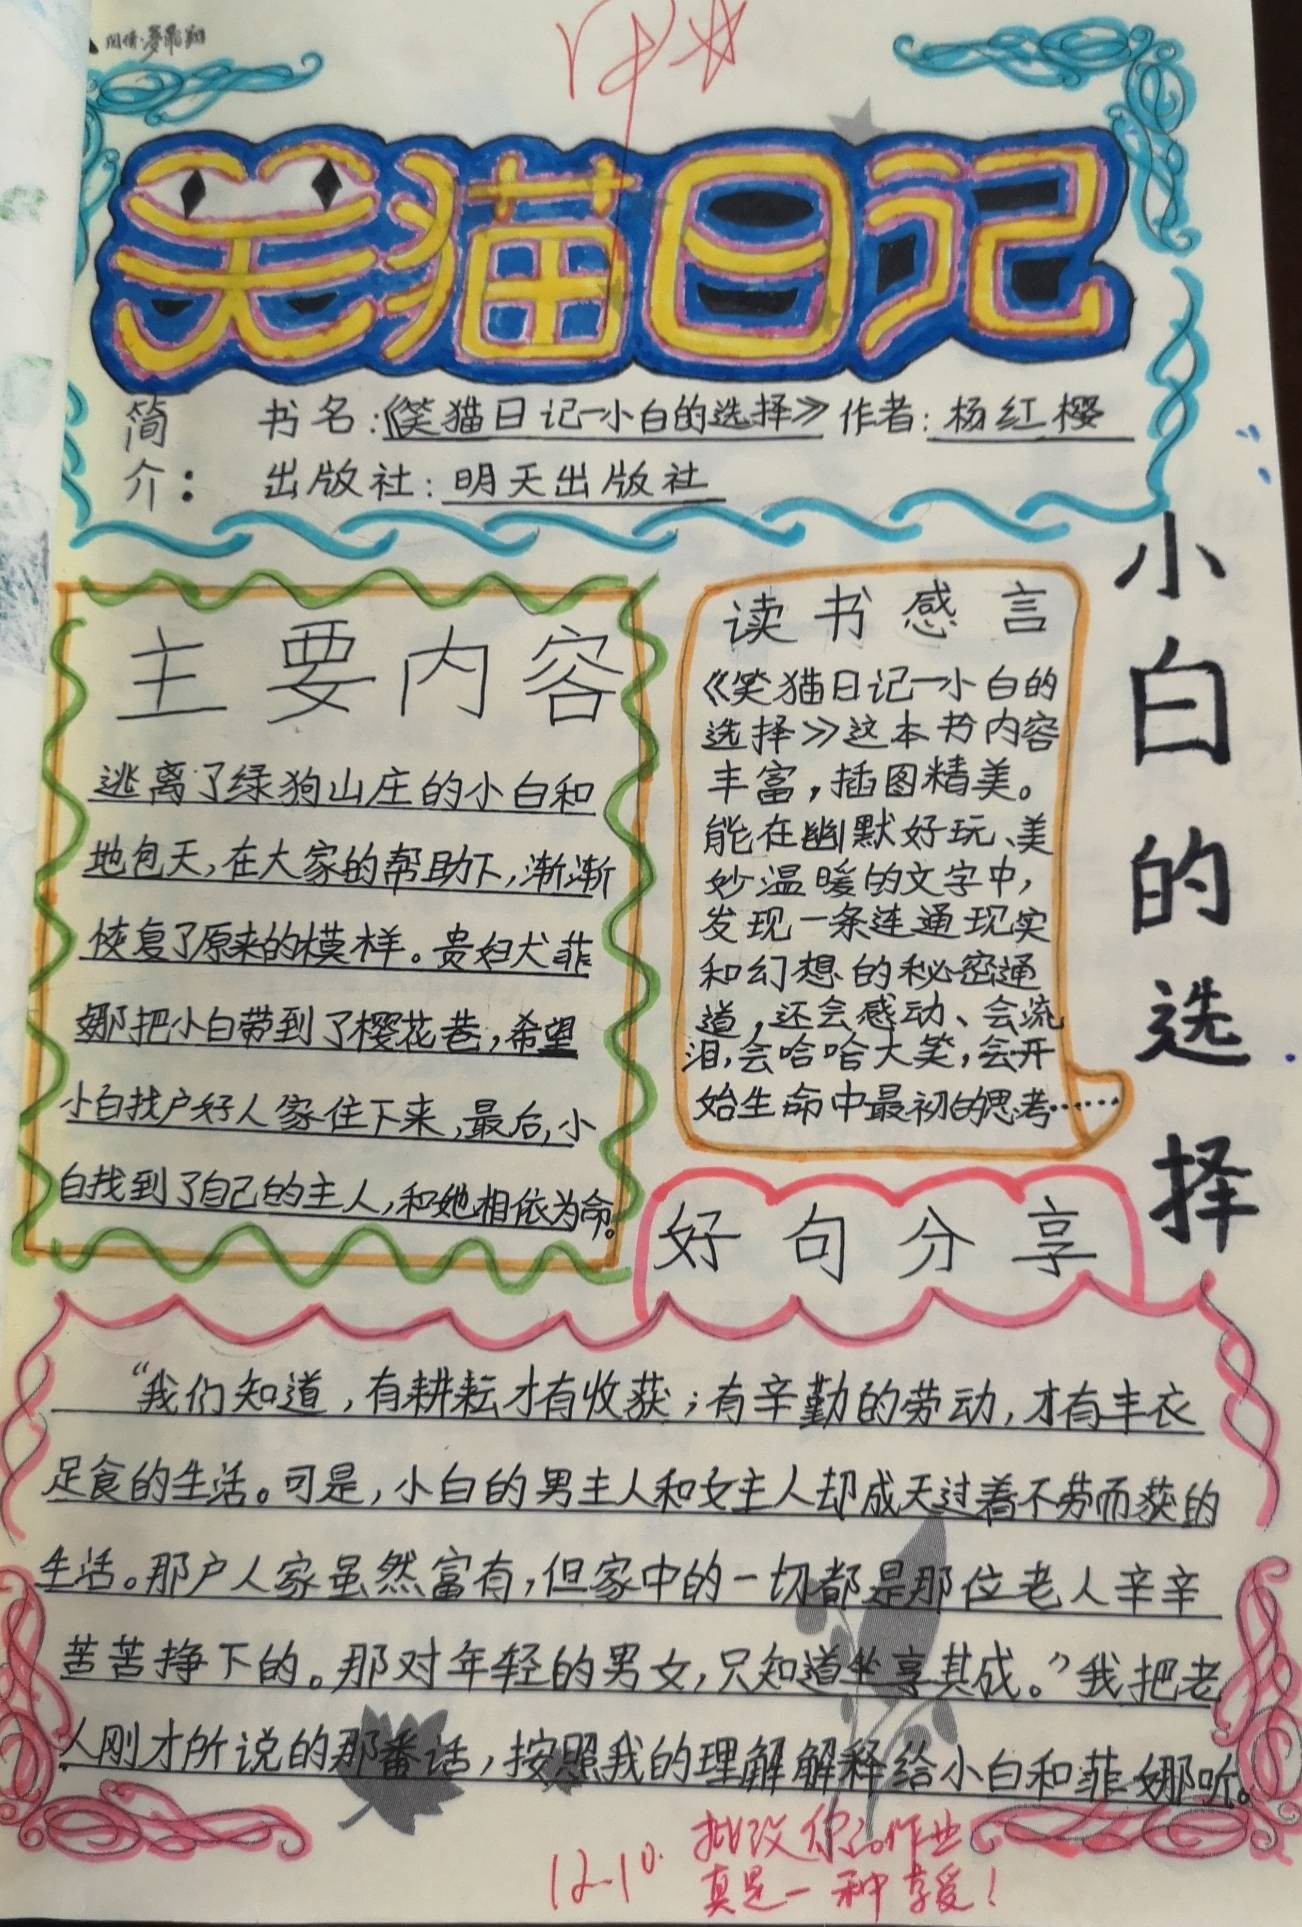 闲情·梦飞翔
笑猫日记
简介:
书名:《笑猫日记一小白的选择》作者:杨红樱
出版社:明天出版社
小白的选择
主要内容
逃离了绿狗山庄的小白和
地包天,在大家的帮助下,渐渐
恢复了原来的模样。贵妇犬菲
娜把小白带到了樱花巷,希望
小白找户好人家住下来,最后,小
白找到了自己的主人,和她相依为命。
读书感言
《笑猫日记一小白的
选择》这本书内容
丰富,插图精美。
能在幽默好玩、美
妙温暖的文字中,
发现一条连通现实
和幻想的秘密通
道,还会感动、会流
泪,会哈哈大笑,会开
始生命中最初的思考……
好句分享
“我们知道,有耕耘才有收获;有辛勤的劳动,才有丰衣
足食的生活。可是,小白的男主人和女主人却成天过着不劳而获的
生活。那户人家虽然富有,但家中的一切都是那位老人辛辛
苦苦挣下的。那对年轻的男女,只知道坐享其成。”我把老
人刚才所说的那番话,按照我的理解解释给小白和菲娜听。
12.10.
批改你的作业
真是一种享受!